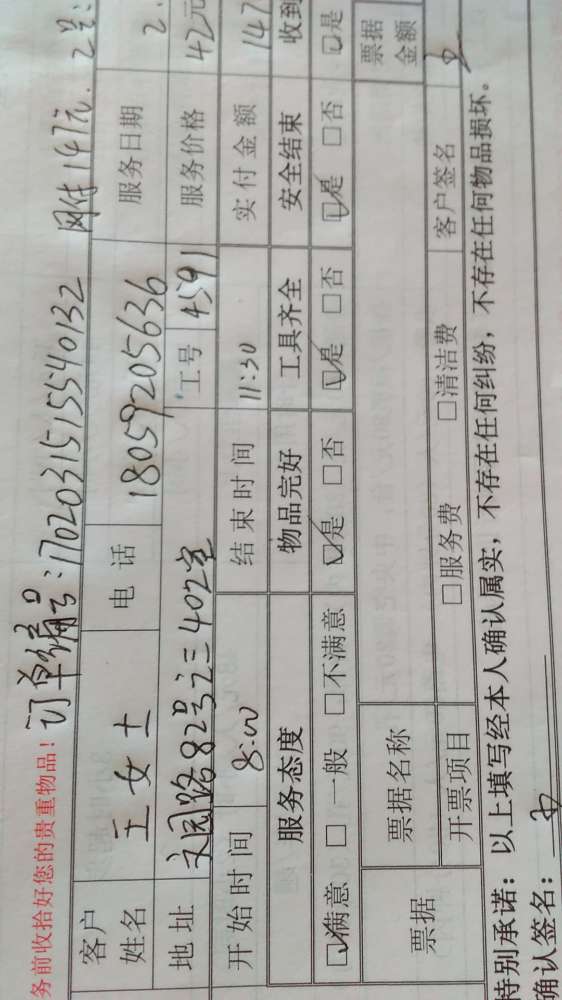 务前收拾好您的贵重物品！ 订单编号：1702031515540132 网付147元.
客户姓名 王女士 电话 18059205636 服务日期 2.
地址 文园路82号之三402室 工号 4591 服务价格 42元
开始时间 8:00 结束时间 11:30 实付金额 147
服务态度 物品完好 工具齐全 安全结束 收到
☑满意 □一般 □不满意 ☑是 □否 ☑是 □否 ☑是 □否 ☑是
票据 票据名称 票据金额
开票项目 □服务费 □清洁费 客户签名
特别承诺：以上填写经本人确认属实，不存在任何纠纷，不存在任何物品损坏。
确认签名：